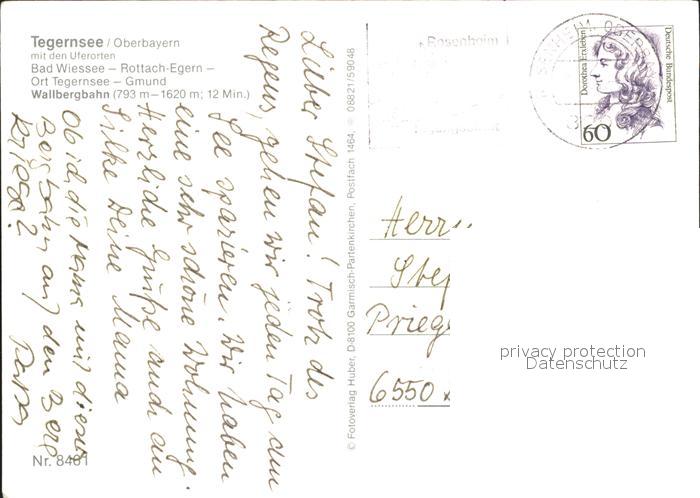 Tegernsee / Oberbayern
mit den Uferorten
Bad Wiessee – Rottach-Egern –
Ort Tegernsee – Gmund
Wallbergbahn (793 m – 1620 m; 12 Min.)
Lieber Stefan! Trotz des
Regens, gehen wir jeden Tag am
See spazieren. Wir haben
eine sehr schöne Wohnung.
Herzliche Grüße auch an
Silke Deine Mama
Ob ich die Mama mit dieser
Bergbahn auf den Berg
kriege? Papa
Nr. 8461
© Fotoverlag Huber, D-8100 Garmisch-Partenkirchen, Postfach 1464, ☏ 08821/59048
Rosenheim
Dorothea Erxleben
Deutsche Bundespost
60
Herrn
Stef
Prieg
6550
privacy protection
Datenschutz